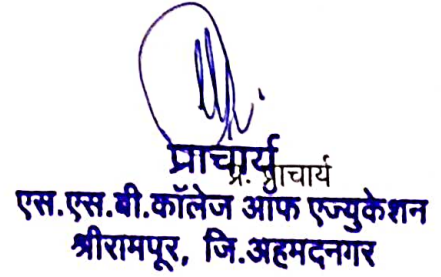 प्राचार्य
प्र. प्राचार्य
एस.एस.बी.कॉलेज ऑफ एज्युकेशन
श्रीरामपूर, जि.अहमदनगर